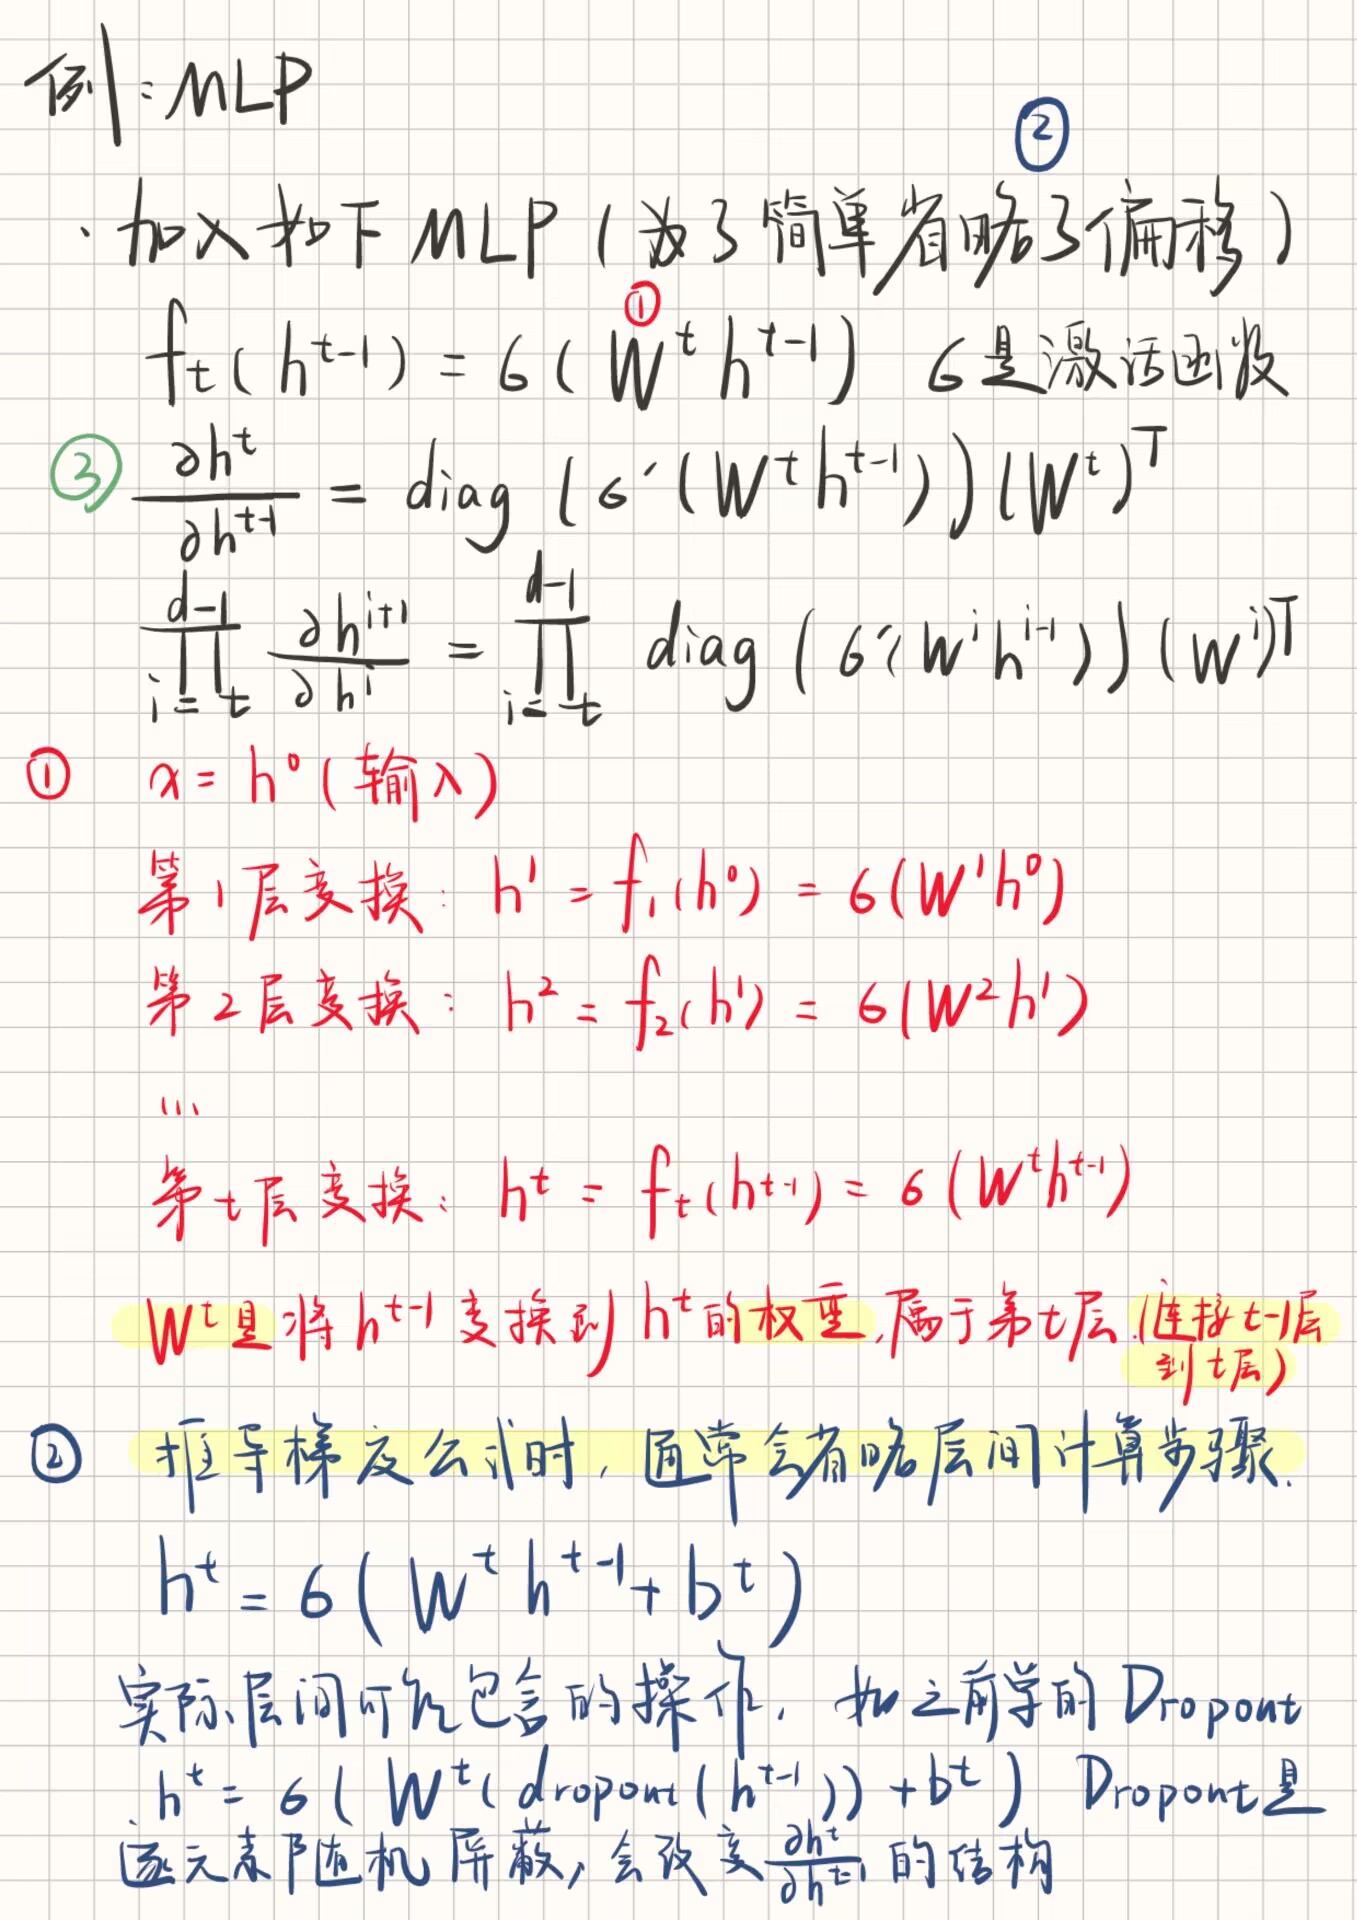 例:MLP
②
· 加入如下 MLP (为了简单省略了偏移)
①
fₜ(hᵗ⁻¹) = σ(Wᵗhᵗ⁻¹) σ是激活函数
③ ∂hᵗ/∂hᵗ⁻¹ = diag(σ'(Wᵗhᵗ⁻¹))(Wᵗ)ᵀ
∏_{i=t}^{d-1} ∂hⁱ⁺¹/∂hⁱ = ∏_{i=t}^{d-1} diag(σ'(Wⁱhⁱ⁻¹))(Wⁱ)ᵀ
① x = h⁰(输入)
第1层变换: h¹ = f₁(h⁰) = σ(W¹h⁰)
第2层变换: h² = f₂(h¹) = σ(W²h¹)
...
第t层变换: hᵗ = fₜ(hᵗ⁻¹) = σ(Wᵗhᵗ⁻¹)
Wᵗ是将hᵗ⁻¹变换到hᵗ的权重,属于第t层.(连接t-1层
到t层)
② 推导梯度公式时,通常会省略层间计算步骤.
hᵗ = σ(Wᵗhᵗ⁻¹+bᵗ)
实际层间可能包含的操作,如之前学的Dropout
hᵗ = σ(Wᵗ(dropout(hᵗ⁻¹))+bᵗ) Dropout是
逐元素随机屏蔽,会改变∂hᵗ/∂hᵗ⁻¹的结构